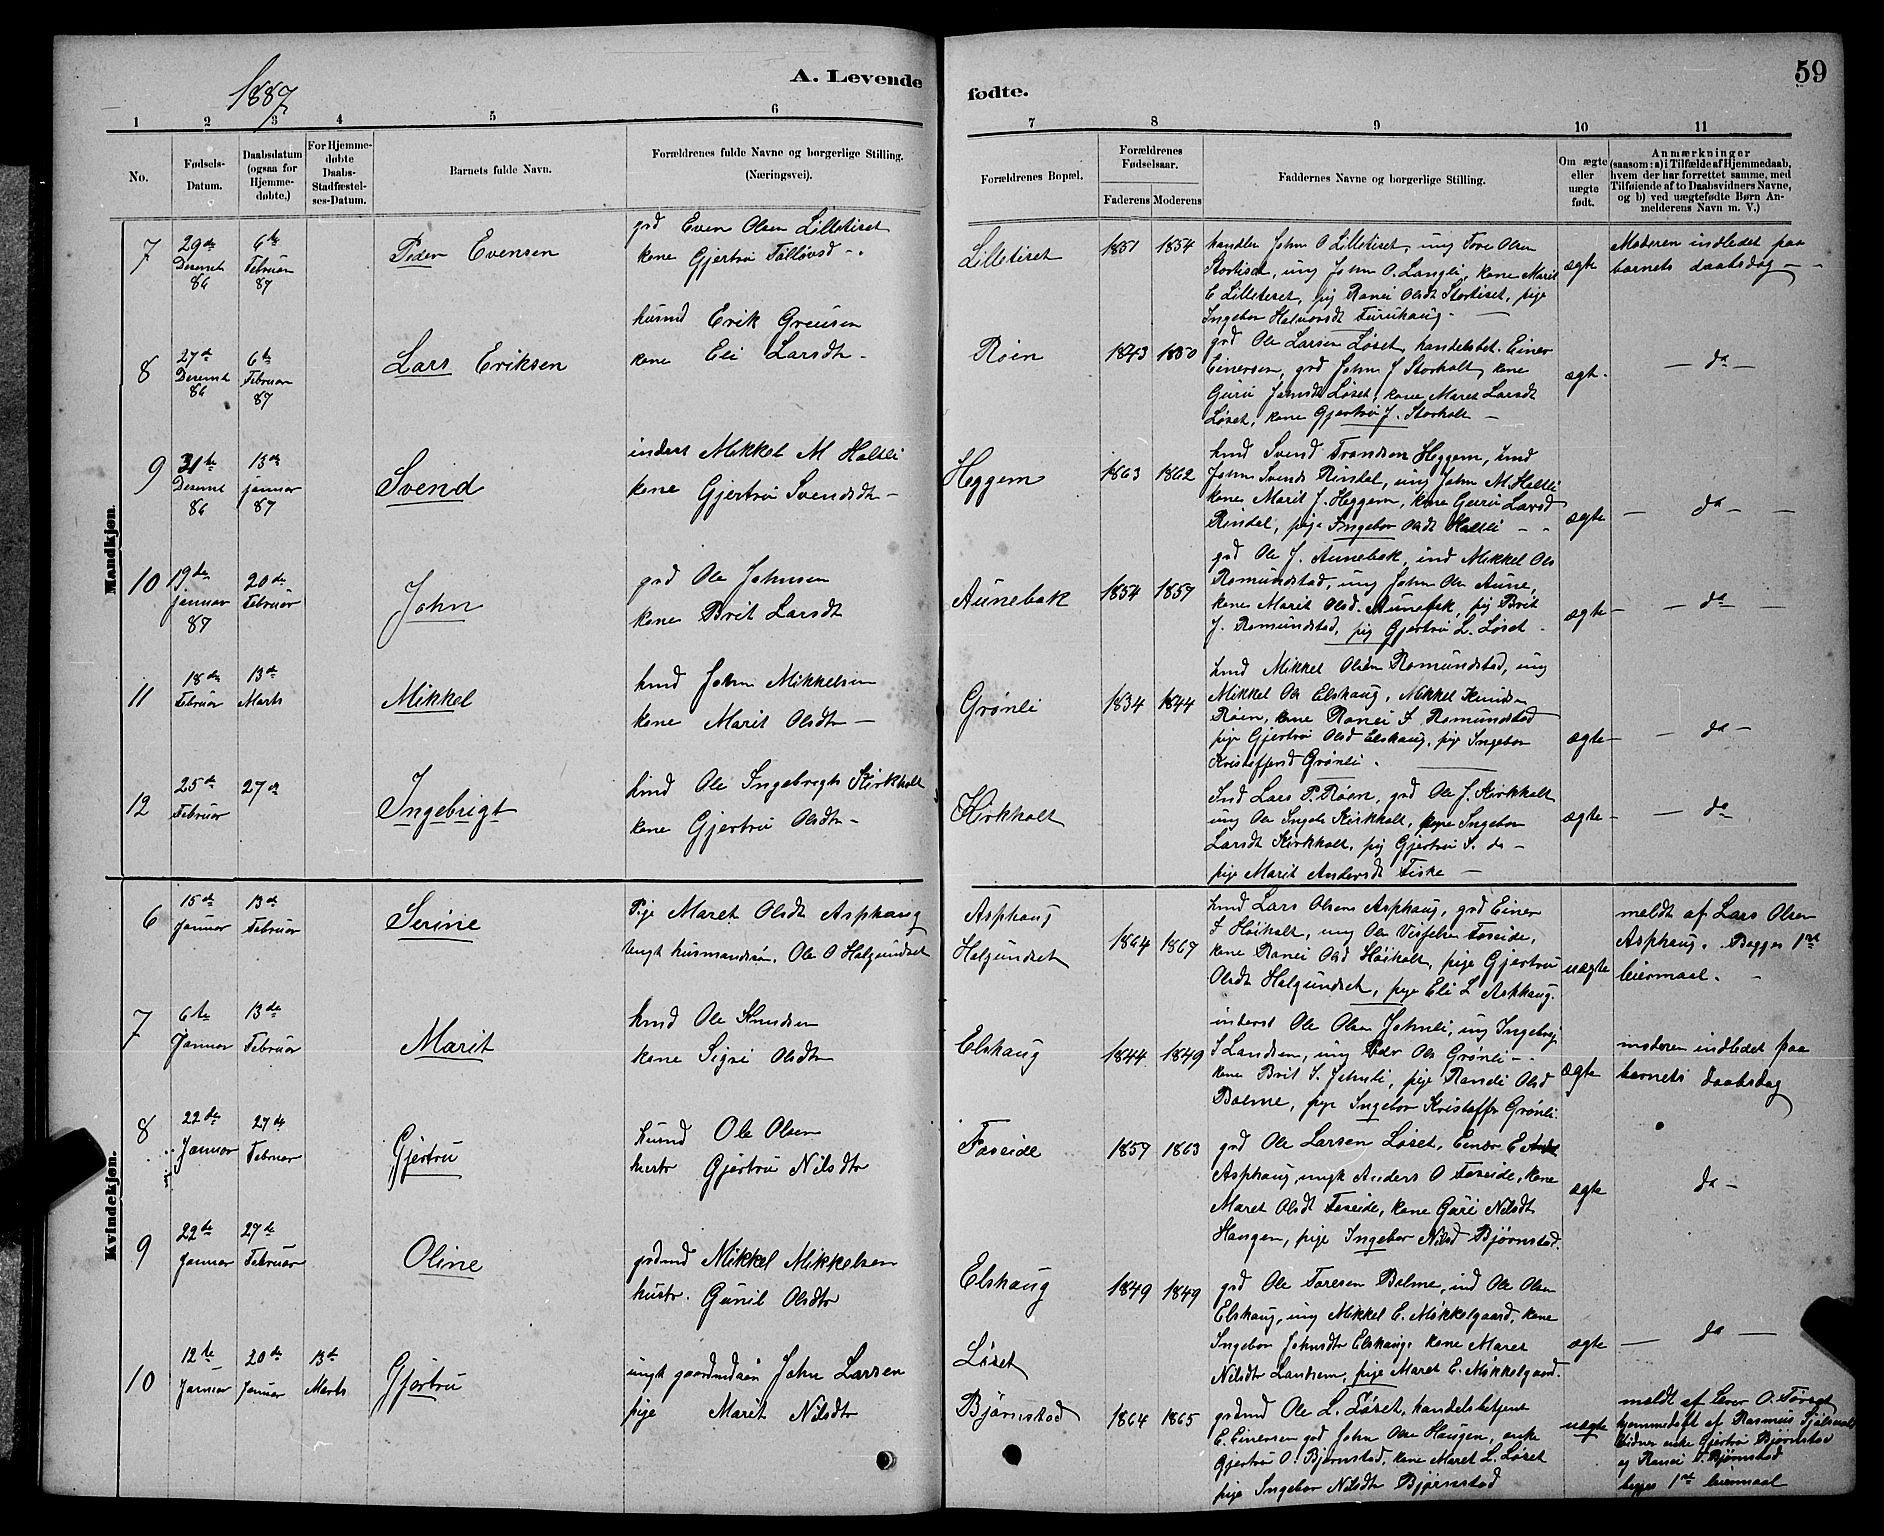 1887
A. Levende
fødte.
59
1 2 3 4 5 6 7 8 9 10 11
No.
Fødsels-
Datum.
Daabsdatum
(ogsaa for
Hjemme-
døbte.)
For Hjemme-
døbte
Daabs-
Stadfæstel-
ses-Datum.
Barnets fulde Navn.
Forældrenes fulde Navne og borgerlige Stilling.
(Næringsvei).
Forældrenes Bopæl.
Forældrenes
Fødselsaar.
Faderens Moderens
Faddernes Navne og borgerlige Stilling.
Om ægte
eller
uægte
født.
Anmærkninger
(saasom: a) i Tilfælde af Hjemmedaab,
hvem der har forrettet samme, med
Tilføiende af to Daabsvidners Navne,
og b) ved uægtefødte Børn An-
melderens Navn m. V.)
Mandkjøn.
7
29de
Desemb
86
6te
Februar
87
Peder Evensen
grd Even Olsen Lilletiset
kone Gjertrø
Lilletiset
1851 1854
handler John O Lilletiset, ung Tore Olsen
Stortiset, ung John O. Langli, kone Marit
E Lilletiset, pig Ranei Olsdt Stortiset, pige
Ingebor Halvorsdt Furuhaug -
ægte
Moderen indledet paa
barnets daabsdag - -
8
27de
Desemb
86
6te
Februar
87
Lars Eriksen
husmd Erik Greusen
kone Eli Larsdtr -
Røen
1843 1850
grd Ole Larsen Løset, handelsbet. Einer
Einersen, grd John J Storholt, kone
Guru Jonsdt Løset, kone Maret Larsdt
Løset, kone Gjertrø J. Storholt -
ægt.
- da -
9
31te
Desemb
86
13de
januar
87
Svend
inderst Mikkel M Haltli
kone Gjertrø Svendsdtr -
Heggem
1863 1862
hmd Svend Trondsen Heggem, hmd
John Svends Rindal, ung John M. Haltli
kone Marit J. Heggem, kone Guru Larsd
Rindal, pige Ingebor Olsdt Haltli - -
ægte
- da -
10
19de
januar
87
20de
Februar
John
grd Ole Johnsen
kone Brit Larsdt
Aunebak
1854 1857
grd Ole J. Aunebak, ind Mikkel Ols
Romundstad, ung John Ols Aune,
kone Marit Olsd. Aunebak, pig Brit
J. Romundstad, pig Gjertrø L. Løset -
ægte -
- da -
11
18de
Februar
13de
Marts
Mikkel
hmd John Mikkelsen
kone Marit Olsdtr -
Grønli
1834 1844
hmd Mikkel Olsen Romundstad, ung
Mikkel Ols Elshaug, Mikkel Knudsen
Røen, kone Ranei I. Romundstad
pige Gjertrø Olsd Elshaug, pige Ingebor
Kristoffersd Grønli.
ægte -
- da -
12
25de
Februar
27de
Ingebrigt
hmd Ole Ingebrigts Kirkholt
kone Gjertrø Olsdtr -
Kirkholt
Ind Lars P. Røen, grd Ole J. Kirkholt
ung Ole Ingebr Kirkholt, kone Ingebor
Larsdt Kirkholt, pig Gjertrø I. do -
pige Marit Andersdt Fiske -
ægte -
- da
Kvindekjøn.
6
15de
Januar
13de
Februar
Serine
Pige Maret Olsdt Asphaug
Ungk husmandsøn, Ole O Halgundset
Asphaug
Halgundset
1864 1867
hmd Lars Olsens Asphaug, grd Einer
I Høiholt, ung Ole Foseide,
kone Ranei Olsd Høiholt, pige Gjertru
Olsdt Halgundset, pige Eli L Asphaug.
uægte
meldt af Lars Olsen
Asphaug. Begges 1ste
leiermaal. -
7
6te
Januar
13de
Februar
Marit
hmd Ole Knudsen
kone Sigri Olsdtr
Elshaug
1844 1849
inderst Ole Olsen Johnli, ung Ingebrig
I Landsem, ung Peder Ols Grønli -
kone Brit S. Johnli, pige Randi Olsd
Bolme, pige Ingebor Kristoffr Grønli.
ægte
moderen indledet paa
barnets daabsdag
8
22de
Januar
27de
Februar
Gjertru
husmd Ole Olsen
hustr Gjertru Nilsdtr
Foseide
1857 1863
grd Ole Larsen Løset, Einer E
Asphaug, ungk Anders O Foseide, kone
Maret Olsdt Foseide, kone Guri Nilsdtr
Haugen, pige Ingebor Nilsd Bjørnstad.
ægte
da -
9
22de
Januar
27de
Februar
Oline
grdmd Mikkel Mikkelsen
hustr. Gunil Olsdtr
Elshaug
1849 1849
grd Ole Toresen Bolme, ind Ole Olsen
Elshaug, ung Mikkel E. Mikkelgaard, kone
Ingebor Johnsdtr Elshaug, kone Maret
Nilsdtr Landsem, pige Maret E. Mikkelgaard.
ægte
- da -
10
12te
Januar
20de
Januar
13de
Marts
Gjertru
ungk gaardmdsøn John Larsen
pige Marit Nilsdtr
Løset
Bjørnstad
1864 1865
grdmd Ole L. Løset, handelsbetjent
E. Einersen grd John Olse Haugen, enke
Gjertru O. Bjørnstad, kone Maret L. Løset
pige Ingebor Nilsdtr Bjørnstad
uægte
meldt af O.
hjemmedøbt af Rasmus
Vidner enke Gjertru Bjørnstad
og Ranei Bjørnstad
begges 1ste leiermaal